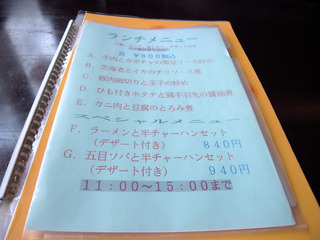 ランチメニュー
各 ¥800税込
A. 牛肉とカボチャの黒豆ソース炒め
B. 芝海老とイカのチリソース煮
C. 豚肉細切りと玉子の炒め
D. ひも付きホタテと鶏手羽先の醤油煮
E. カニ肉と豆腐のとろみ煮
スペシャルメニュー
F. ラーメンと半チャーハンセット
(デザート付き) 840円
G. 五目ソバと半チャーハンセット
(デザート付き) 940円
11:00〜15:00まで